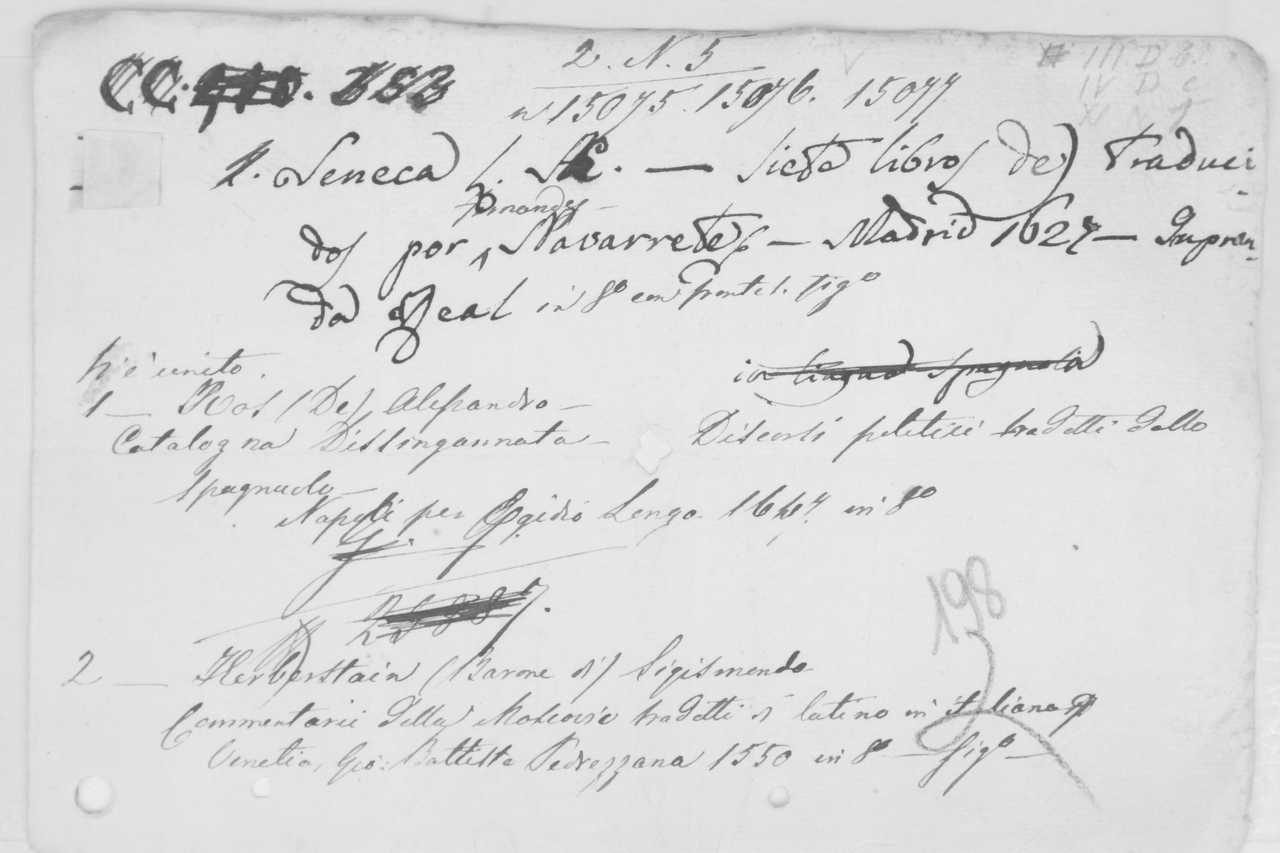 2. N. 5
CC. 383
n 15075. 15076. 15077
III. D
IV D c
1. Seneca L. — Siete libros de) Traduci-
Fernandez
dos por Navarrete — Madrid 1627 — Impren-
da Real in 8º con frontesp. figº
V'è unito.
in lingua spagnola
1 — Ros (De) Alessandro —
Catalogna Dissingannata — Discorsi politici tradotti dallo
spagnuolo —
Napoli per Egidio Longo 1647. in 8º
198
2 — Herberstain (Barone di) Sigismondo
Commentarii della Moscovia tradotti di latino in italiano
Venetia, Gio: Battista Pedrezzana 1550 in 8º — figº —